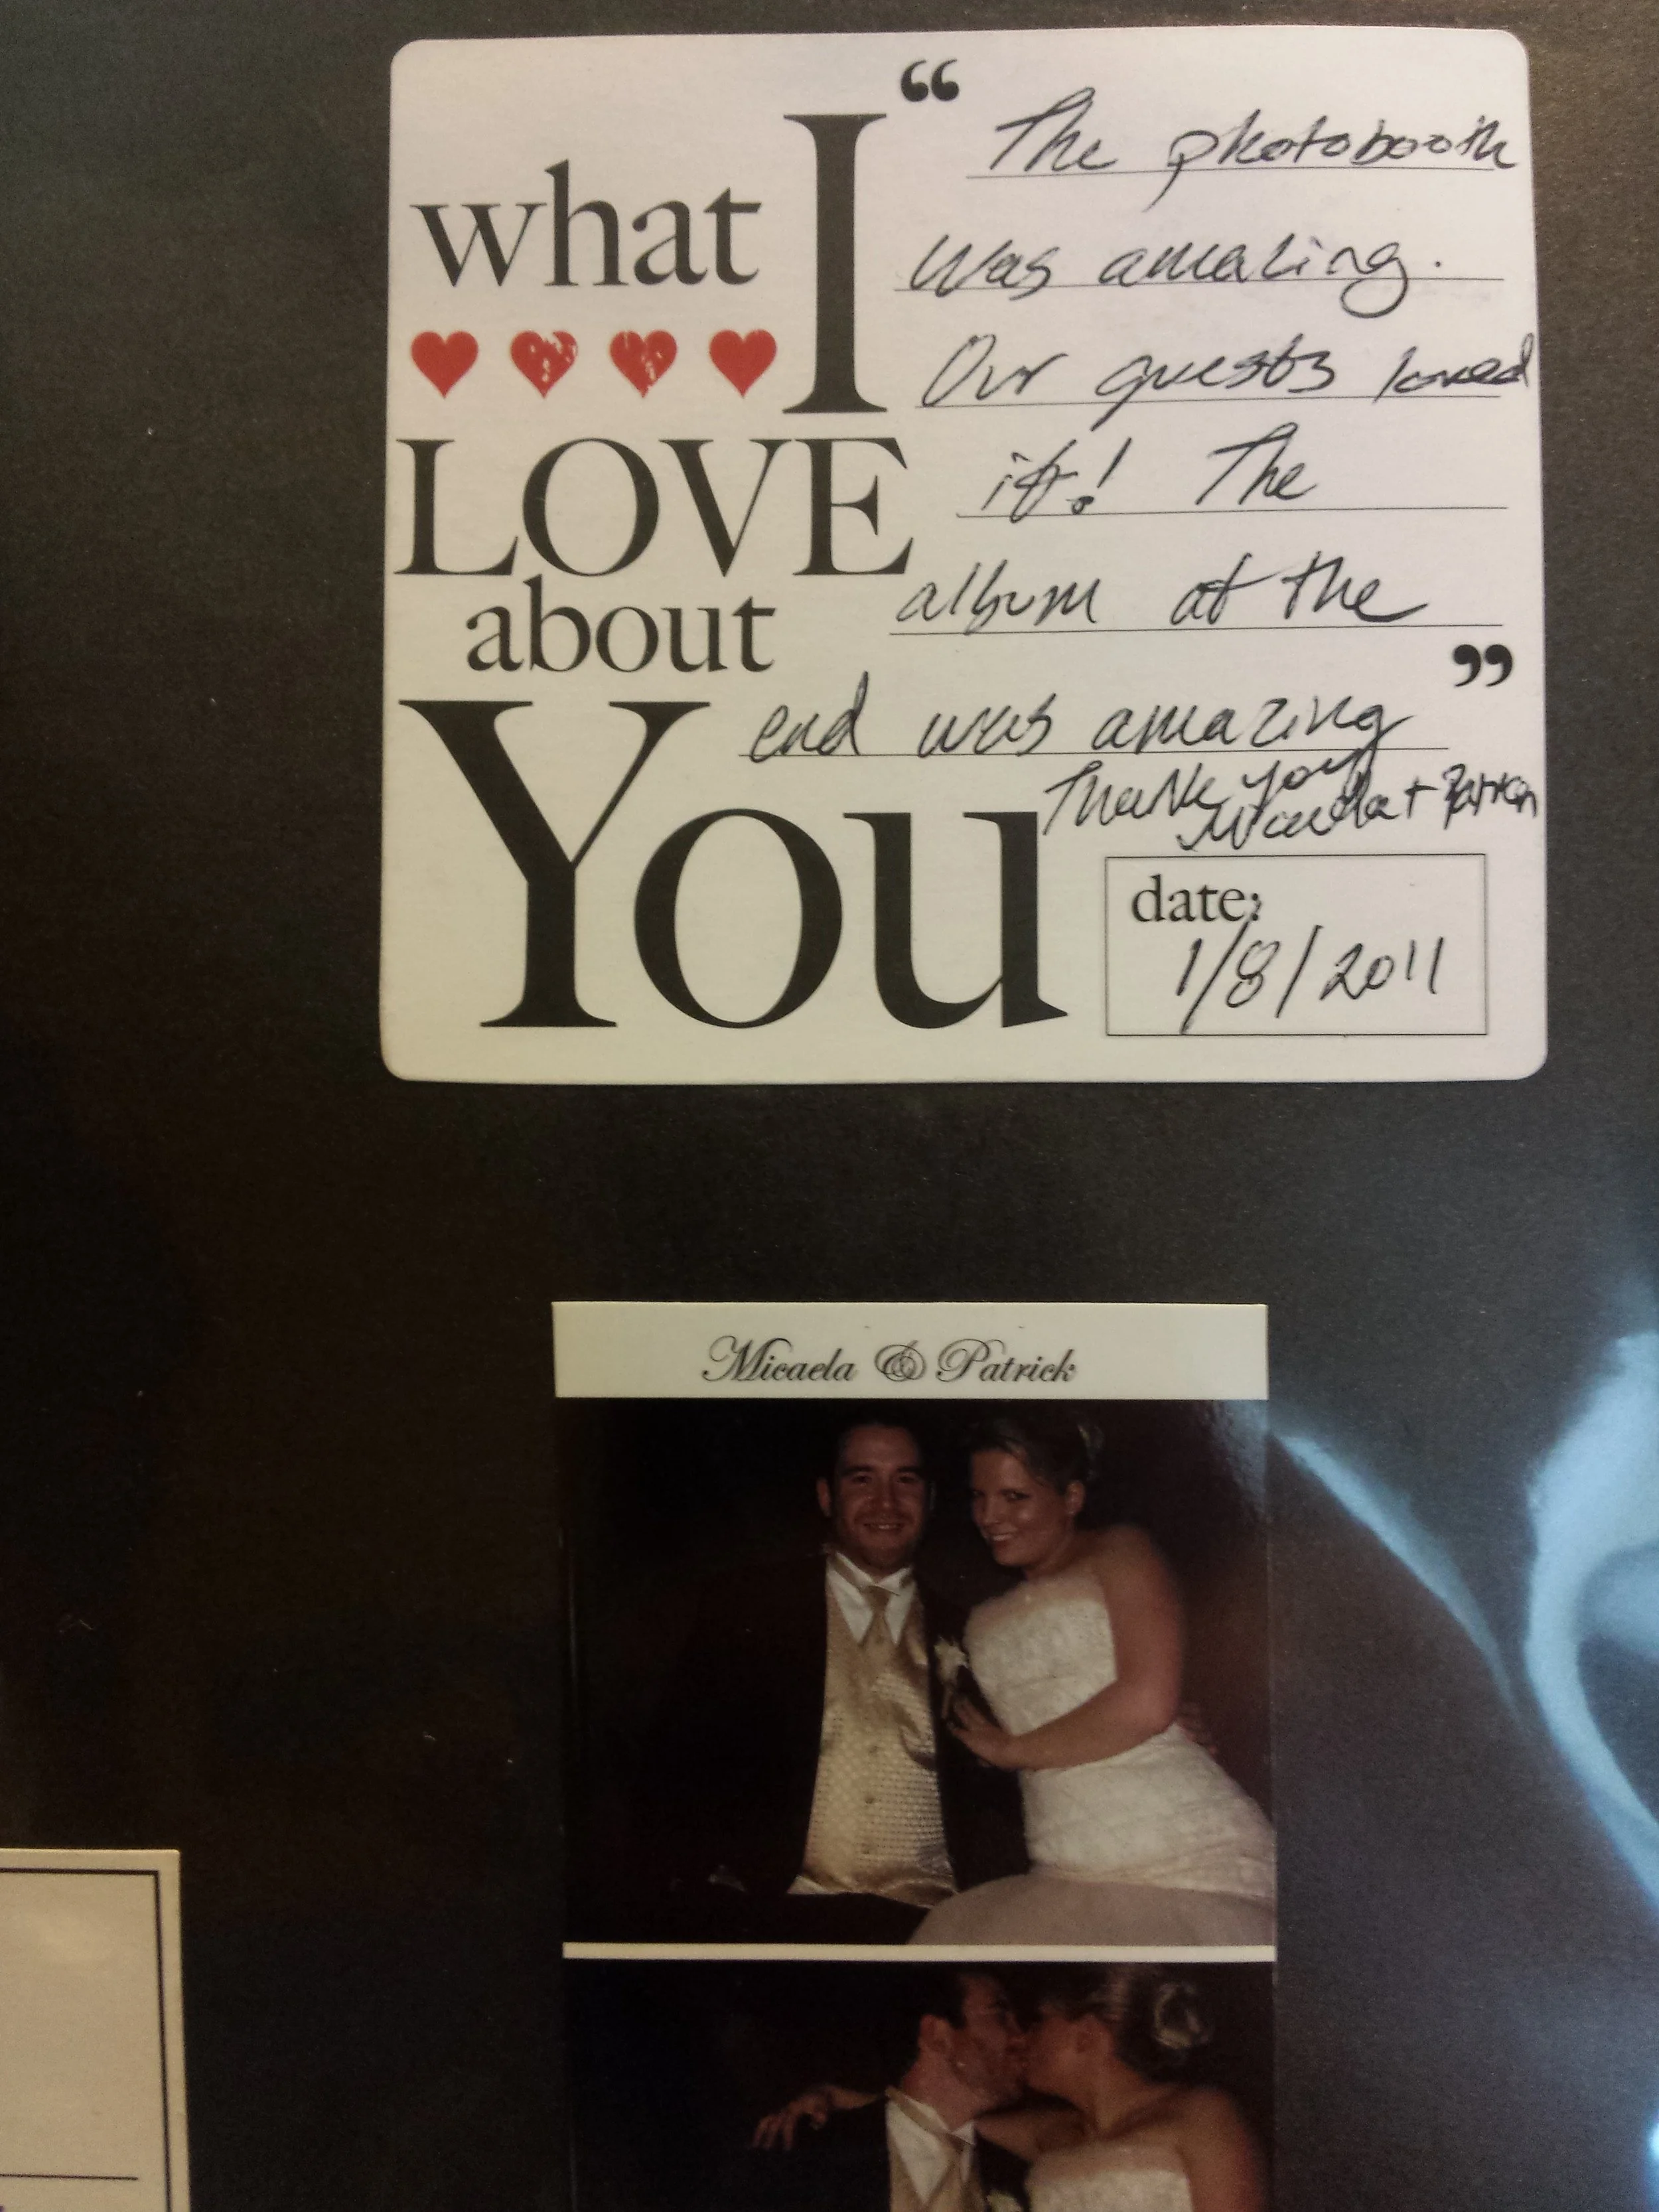 what I
LOVE
about
You
“ The photobooth
was amazing.
Our guests loved
it! The
album at the
end was amazing ”
Thank you
Micaela + Patrick
date:
1/8/2011
Micaela & Patrick